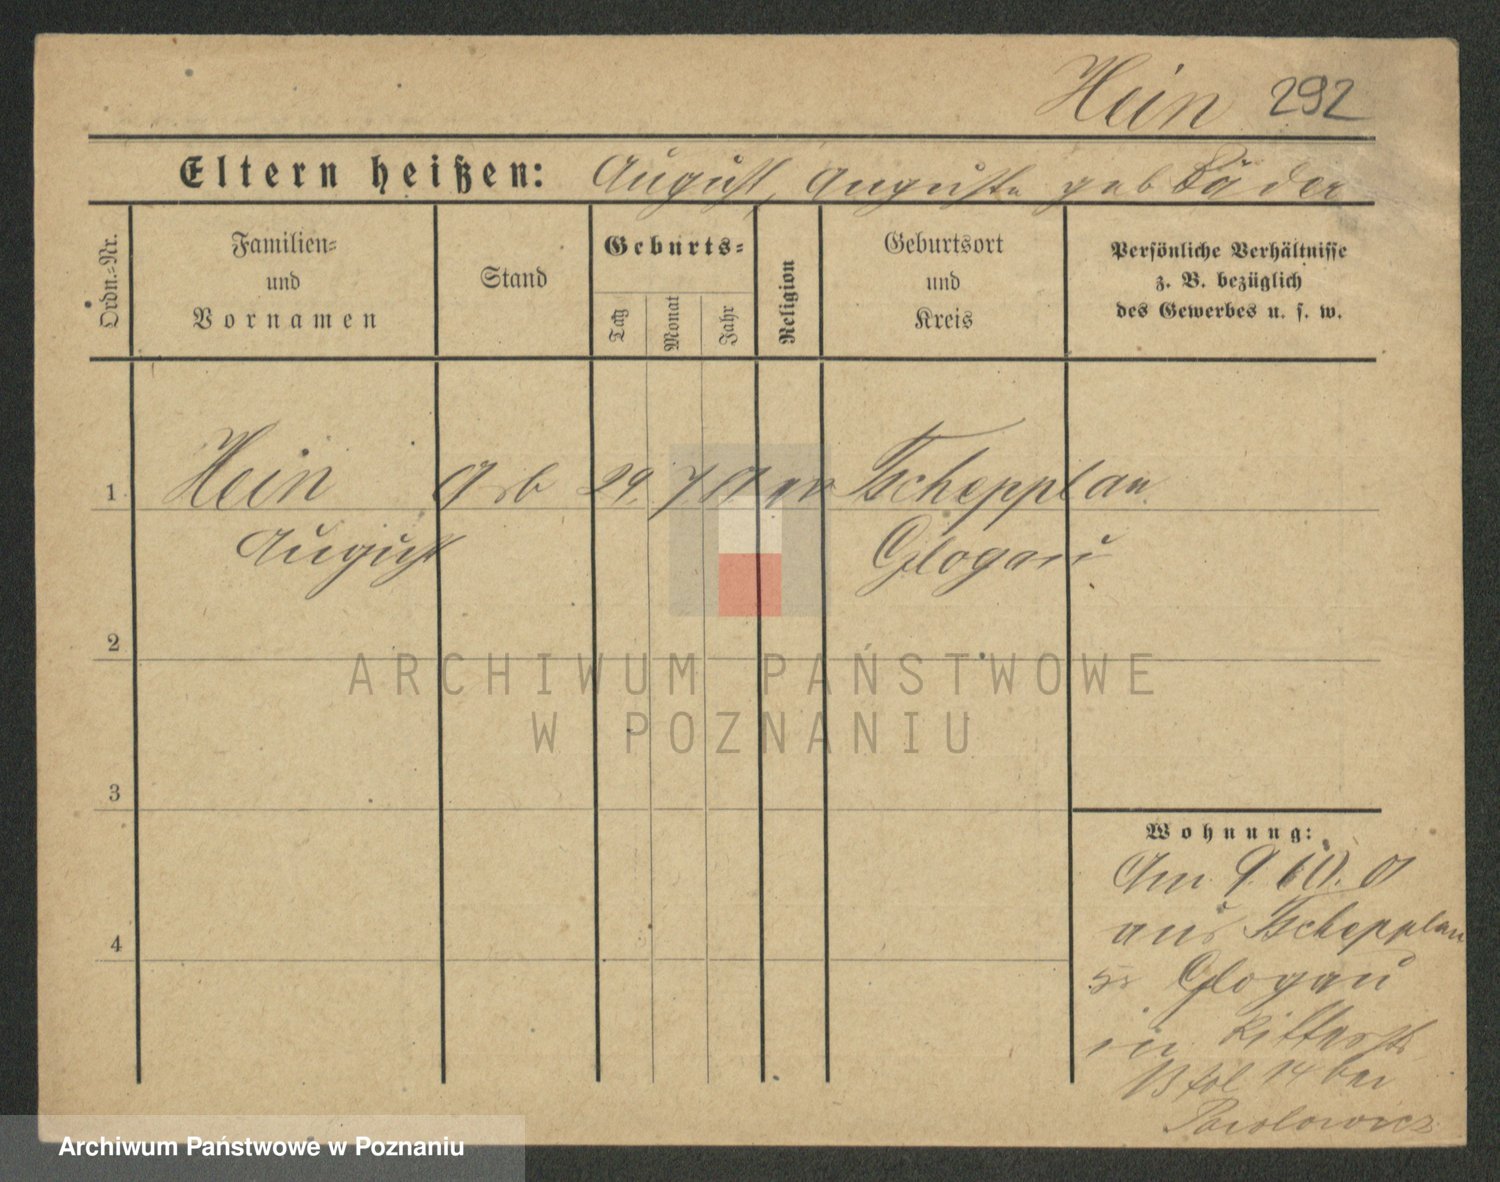 Hein 292
Eltern heißen: August, Auguste geb Bäder
Ordn.=Nr.
Familien=
und
Vornamen
Stand
Geburts=
Tag
Monat
Jahr
Religion
Geburtsort
und
Kreis
Persönliche Verhältnisse
z. B. bezüglich
des Gewerbes u. s. w.
1 Hein Arb 29. 7 ev Tschepplau
August Glogau
2
3
4
Wohnung:
Am 9. 10. 0
aus Tschepplau
Glogau
in Ritterstr
13 14 bei
Pawlowicz
ARCHIWUM PAŃSTWOWE
W POZNANIU
Archiwum Państwowe w Poznaniu